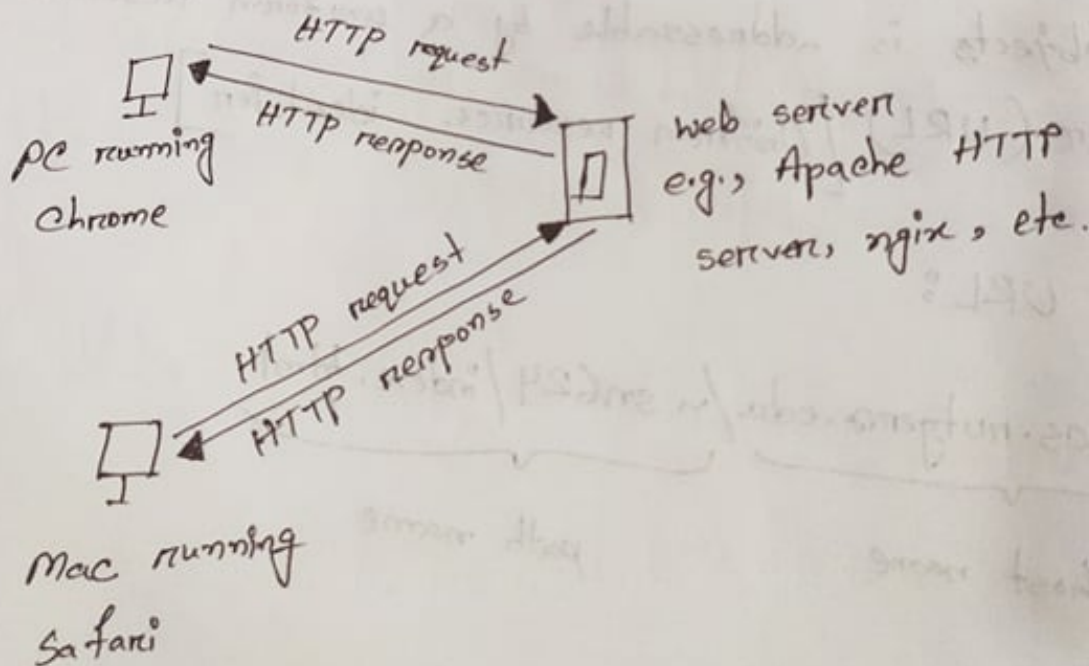 HTTP request
HTTP response
PC running
Chrome
web server
e.g., Apache HTTP
server, ngix, etc.
HTTP request
HTTP response
Mac running
Safari